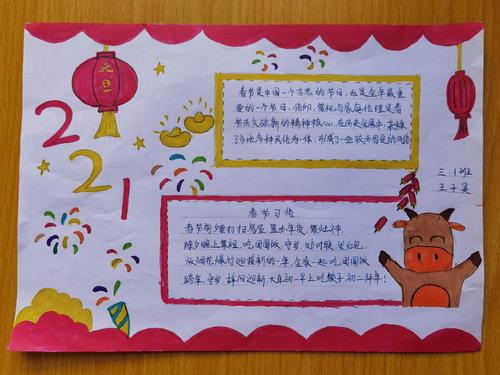 元
旦
2
2
1
春节是中国一个古老的节日,也是全年最重
要的一个节日,信仰、寄托与家庭伦理是春
节历久弥新的精神核心,在历史发展中,
了各地各种民俗为一体,形成了一些较为固定的风俗
三.1班
王子
春节习俗
春节前夕要打扫房屋 置办年货、祭灶神、
除夕晚上祭祖、吃团圆饭、守岁、贴对联、发红包、
放烟花爆竹迎接新的一年,全家一起吃团圆饭
跨年、守岁、辞旧迎新,大年初一早上吃饺子 初二拜年!